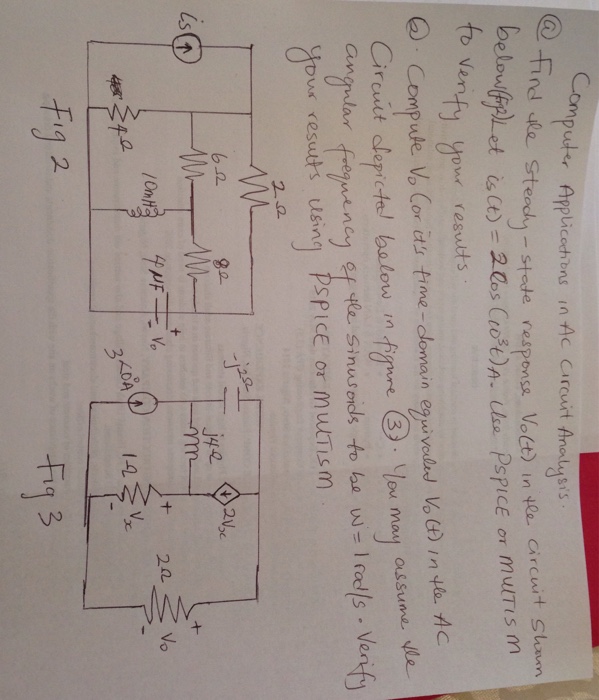 Computer Applications in AC Circuit Analysis.
(a) Find the steady-state response Vo(t) in the circuit shown
below(fig2). Let is(t) = 2Cos(10³t) A. Use PSPICE or MULTISM
to verify your results.
(b). Compute Vo (or it's time-domain equivalent Vo(t) in the AC
Circuit depicted below in figure (3). You may assume the
angular frequency of the sinusoids to be w = 1 rad/s. Verify
your results using PSPICE or MULTISM.
is
2Ω
6Ω
8Ω
4Ω
10mH
4μF
+
Vo
-
Fig 2
-j2Ω
j4Ω
2Vx
3∠0°A
1Ω
+
Vx
-
2Ω
+
Vo
-
Fig 3